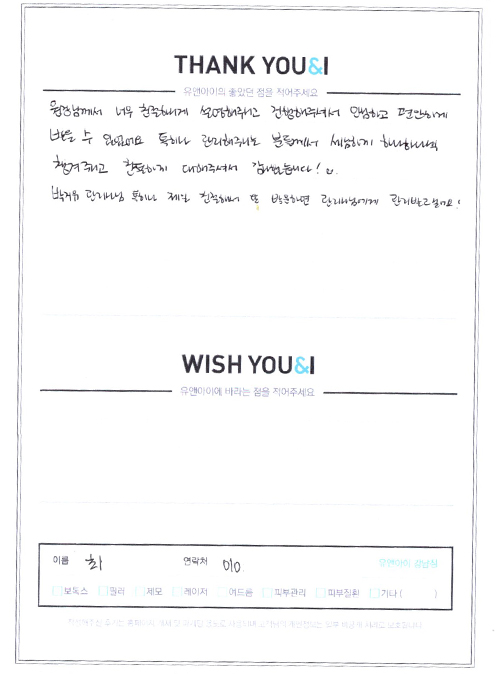 THANK YOU&I
유앤아이의 좋았던 점을 적어주세요
원장님께서 너무 친절하게 설명해주시고 진행해주셔서 안심하고 편안하게
받을 수 있었어요 특히나 관리해주시는 분들께서 세심하게 하나하나씩
챙겨주시고 친절하게 대해주셔서 감사했습니다!
관리사님 특히나 제일 친절해서 또 방문하면 관리사님에게 관리받고싶어요!
WISH YOU&I
유앤아이에 바라는 점을 적어주세요
이름 연락처 010 유앤아이 강남점
보톡스 필러 제모 레이저 여드름 피부관리 피부질환 기타 ( )